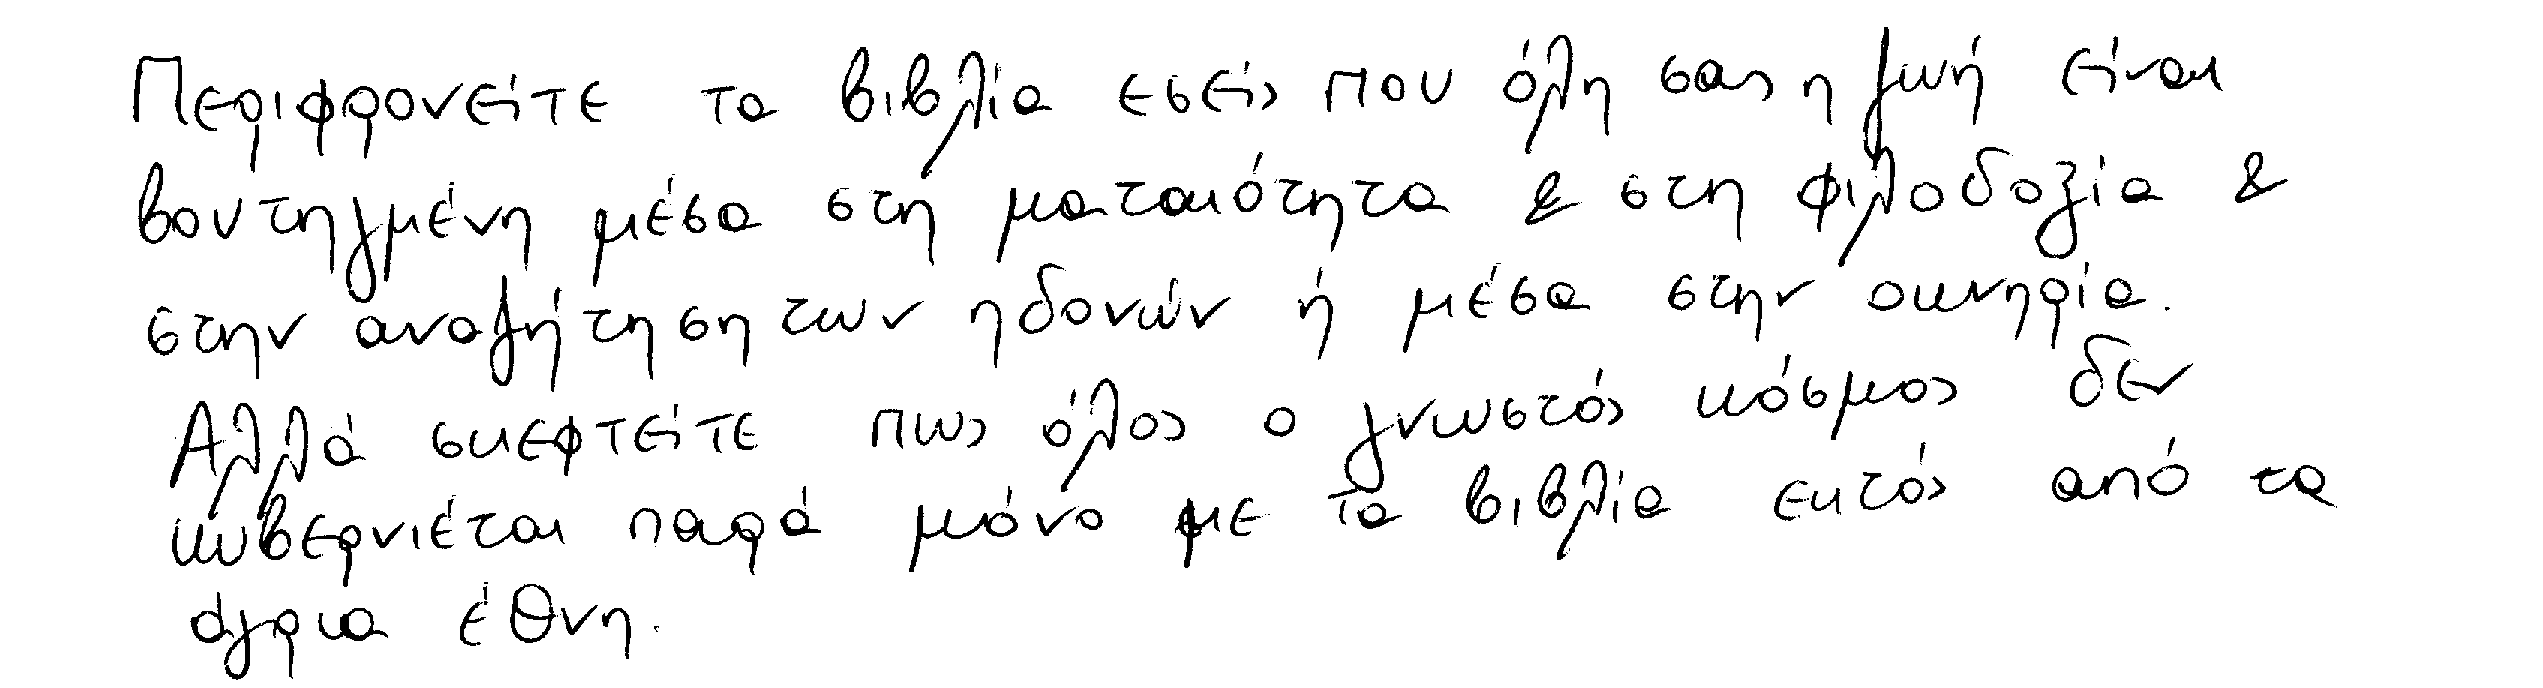 Περιφρονείτε τα βιβλία εσείς που όλη σας η ζωή είναι
βουτηγμένη μέσα στη ματαιότητα & στη φιλοδοξία &
στην αναζήτηση των ηδονών ή μέσα στην οκνηρία.
Αλλά σκεφτείτε πως όλος ο γνωστός κόσμος δεν
κυβερνιέται παρά μόνο με τα βιβλία εκτός από τα
άγρια έθνη.